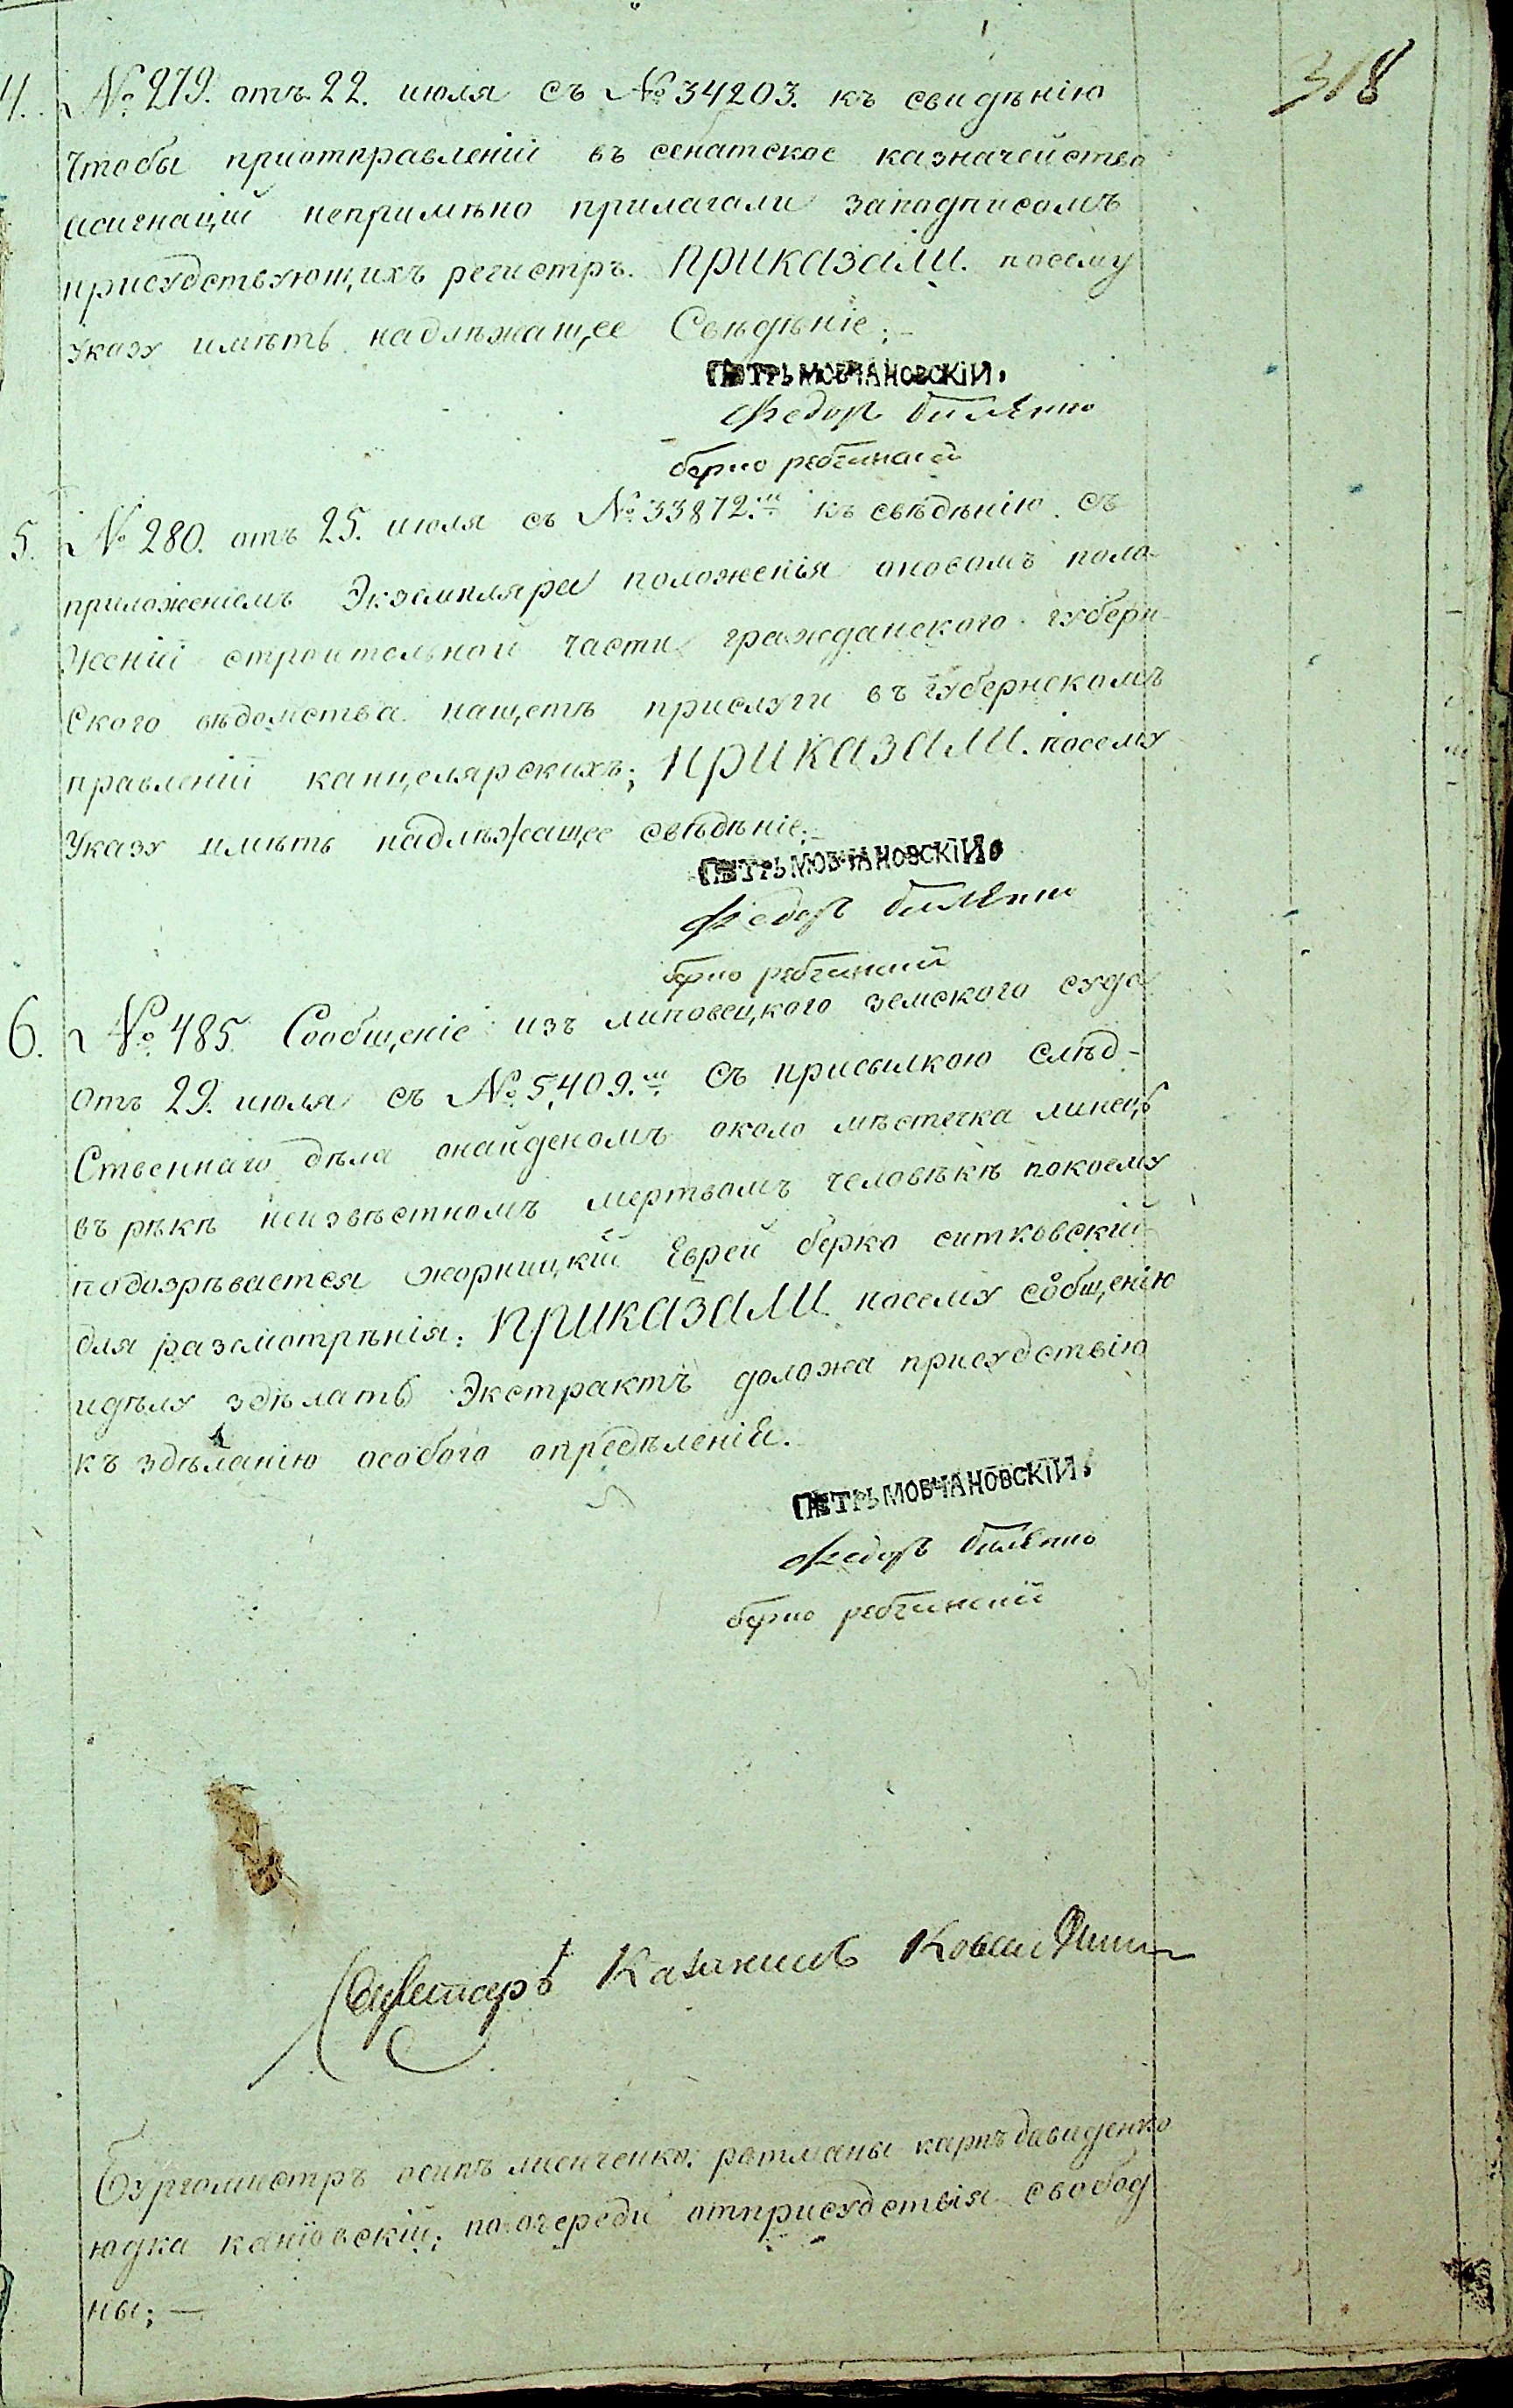 318
4. № 279. отъ 22. июля съ № 34203. къ свидѣнію
чтобы приотправленіи въ сенатское казначейство
асигнацій непримѣно прилагали заподписомъ
присудствующихъ регистръ. приказали. посему
указу имѣть надлѣжащее Свѣдѣніе;
ПЕТРЬ МОВЧАНОВСКІЙ.
Федор билЕнко
берко ребчинский
5. № 280. отъ 25. июля съ № 33872.м къ свѣдѣнію съ
приложеніемъ Экземпляра положенія оновомъ поло-
женіи строительной части гражданского губерн-
ского вѣдомства нащетъ прислуги въ губернскомъ
правленіи канцелярскихъ; приказали. посему
указу имѣть надлѣжащее свѣдѣніе;
ПЕТРЬ МОВЧАНОВСКІЙ.
Федоръ билЕнко
берко ребчинский
6. № 485. Сообщеніе изъ липовецкого земского суда
отъ 29. июля съ № 5,409.м съ присылкою слѣд-
Ственнаго дѣла онайденомъ около мѣстечка линецъ
въ рѣкѣ неизвѣстномъ мертвомъ человѣкѣ покоему
подозрѣвается жорницкій Еврей берко ситковскій
для разсмотрѣнія: приказали посему сообщенію
идѣлу здѣлать Экстрактъ доложа присудствію
къ здѣланію особого опредѣленіЯ.
ПЕТРЬ МОВЧАНОВСКІЙ.
Федоръ билЕнко
берко ребчинский
Секретарь
Бургомистръ осипъ лисиченко: ратманы карпъ давиденко
юдка каніовскій; поочереди отприсудствія свобод
ны; —